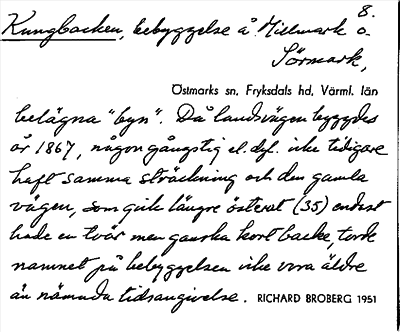 8.
Kungbacken, bebyggelse å Millmark o.
Sörmark,
Östmarks sn, Fryksdals hd, Värml. län
belägna "byn". Då landsvägen byggdes
år 1867, någon gångstig el. dyl. icke tidigare
haft samma sträckning och den gamla
vägen, som gick längre österut (35) endast
hade en tvär men ganska kort backe, torde
namnet på bebyggelsen icke vara äldre
än nämnda tidsangivelse. RICHARD BROBERG 1951